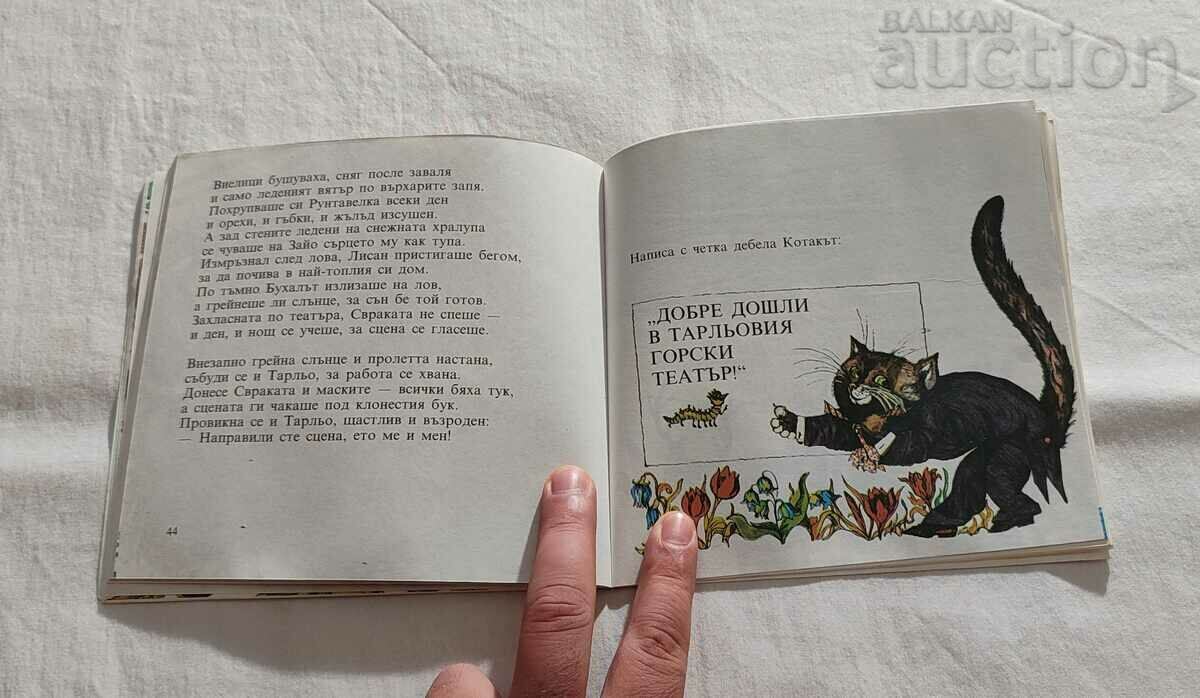 BALKAN
auction
Виелици бушуваха, сняг после заваля
и само леденият вятър по върхарите запя.
Похрупваше си Рунтавелка всеки ден
и орехи, и гъбки, и жълъд изсушен.
А зад стените ледени на снежната хралупа
се чуваше на Зайо сърцето му как тупа.
Измръзнал след лова, Лисан пристигаше бегом,
за да почива в най-топлия си дом.
По тъмно Бухалът излизаше на лов,
а грейнеше ли слънце, за сън бе той готов.
Захласната по театъра, Свраката не спеше —
и ден, и нощ се учеше, за сцена се гласеше.
Внезапно грейна слънце и пролетта настана,
събуди се и Тарльо, за работа се хвана.
Донесе Свраката и маските — всички бяха тук,
а сцената ги чакаше под клонестия бук.
Провикна се и Тарльо, щастлив и възроден:
— Направили сте сцена, ето ме и мен!
44
Написа с четка дебела Котакът:
„ДОБРЕ ДОШЛИ
В ТАРЛЬОВИЯ
ГОРСКИ
ТЕАТЪР!“